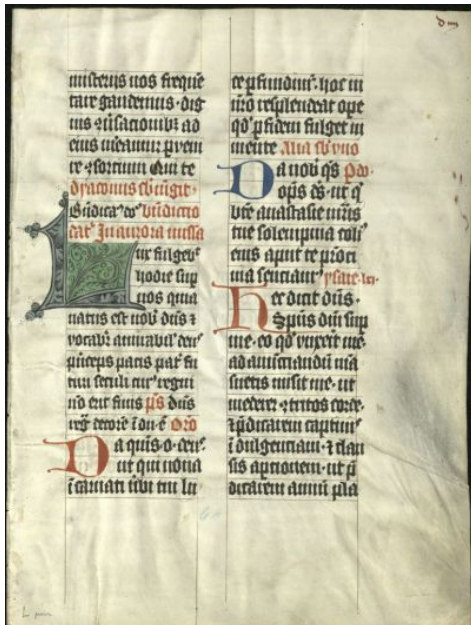 misteriis nos freque
tare gaudemus · dig
nis ↊ůsacionibꝫ ad
eius mereamur pveni
re ↊sorcium Qui te
dyaconus
Bn̄dica
In aurora missa
ux fulgebˀ
hodie sup
nos quia
natus est nob̄ dn̄s ⁊
vocabiˀ amirabil deuˀ
p̄nceps pacis pat̄ fu
turi seculi cuiˀ regni
nō erit finis p̄s dn̄s
regˀ decorē īdu ē Oro
Da quis o · deuˀ
ut qui noua
īcarnati ůbi tui lu
ce pfundimˀ · hoc in
nr̄o resplendeat ope
qd̓ p fidem fulget in
mente Alia
Da nob̄ qs̄
op̄s ds̄ · ut q
bte anastasie mr̄is
tue solempnia coliˀ
eius aput te p̄roci
nia senciamˀ ysaie
Hec dicit dn̄s ·
Sp̄us dn̄i sup
me · eo qd̓ vnxerit me ·
ad annūciandū mā
suetis misit me · ut
mederer ↊tritos corde ·
⁊ p̄dicarem captiuiˀ
īdulgenciam · ⁊ clau
sis apcionem · ut p̄
dicarem annū pla